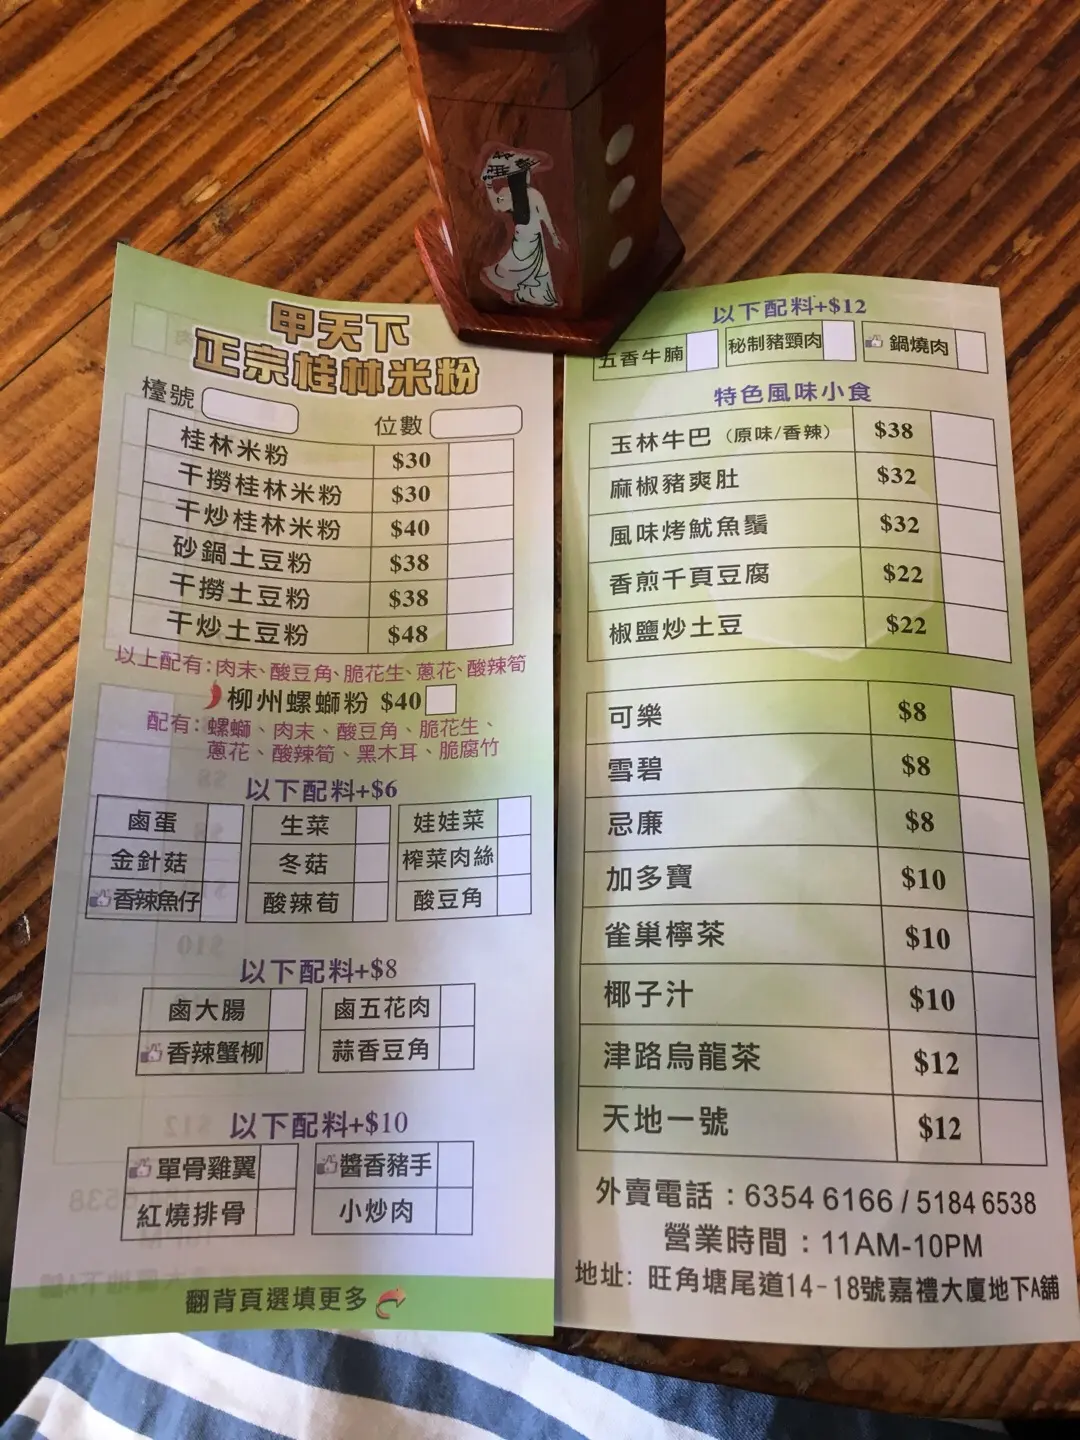 甲天下
正宗桂林米粉
檯號
位數
桂林米粉 $30
干撈桂林米粉 $30
干炒桂林米粉 $40
砂鍋土豆粉 $38
干撈土豆粉 $38
干炒土豆粉 $48
以上配有:肉末、酸豆角、脆花生、蔥花、酸辣筍
柳州螺螄粉 $40
配有:螺螄、肉末、酸豆角、脆花生、
蔥花、酸辣筍、黑木耳、脆腐竹
以下配料+$6
鹵蛋 生菜 娃娃菜
金針菇 冬菇 榨菜肉絲
香辣魚仔 酸辣荀 酸豆角
以下配料+$8
鹵大腸 鹵五花肉
香辣蟹柳 蒜香豆角
以下配料+$10
單骨雞翼 醬香豬手
紅燒排骨 小炒肉
翻背頁選填更多
以下配料+$12
五香牛腩 秘制豬頸肉 鍋燒肉
特色風味小食
玉林牛巴(原味/香辣) $38
麻椒豬爽肚 $32
風味烤魷魚鬚 $32
香煎千頁豆腐 $22
椒鹽炒土豆 $22
可樂 $8
雪碧 $8
忌廉 $8
加多寶 $10
雀巢檸茶 $10
椰子汁 $10
津路烏龍茶 $12
天地一號 $12
外賣電話:6354 6166 / 5184 6538
營業時間:11AM-10PM
地址:旺角塘尾道14-18號嘉禮大廈地下A舖